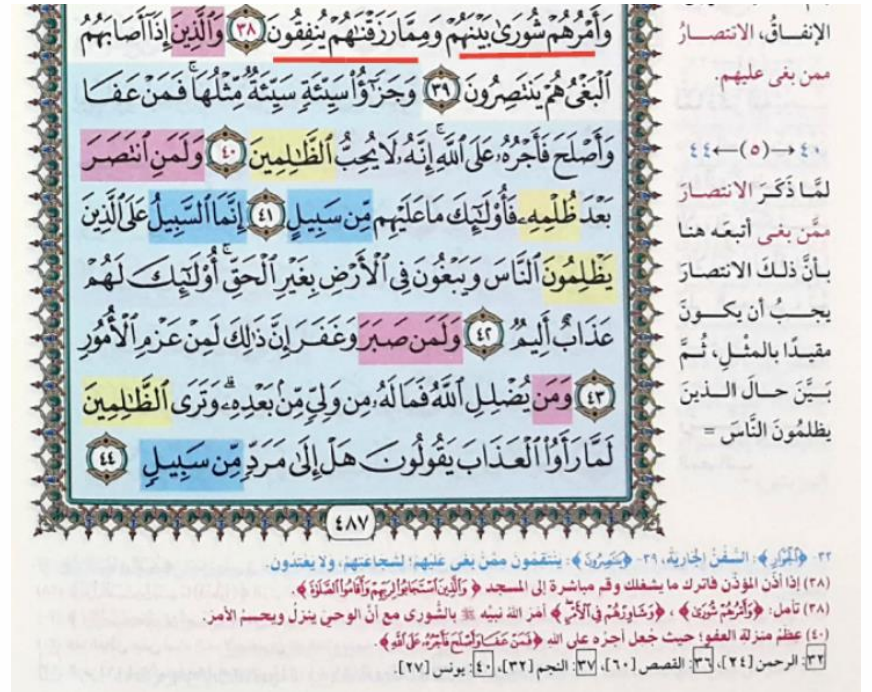 وَأَمْرُهُمْ شُورَىٰ بَيْنَهُمْ وَمِمَّا رَزَقْنَٰهُمْ يُنفِقُونَ ﴿٣٨﴾ وَٱلَّذِينَ إِذَآ أَصَابَهُمُ
ٱلْبَغْىُ هُمْ يَنتَصِرُونَ ﴿٣٩﴾ وَجَزَٰٓؤُا۟ سَيِّئَةٍ سَيِّئَةٌ مِّثْلُهَا ۖ فَمَنْ عَفَا
وَأَصْلَحَ فَأَجْرُهُۥ عَلَى ٱللَّهِ ۚ إِنَّهُۥ لَا يُحِبُّ ٱلظَّٰلِمِينَ ﴿٤٠﴾ وَلَمَنِ ٱنتَصَرَ
بَعْدَ ظُلْمِهِۦ فَأُو۟لَٰٓئِكَ مَا عَلَيْهِم مِّن سَبِيلٍ ﴿٤١﴾ إِنَّمَا ٱلسَّبِيلُ عَلَى ٱلَّذِينَ
يَظْلِمُونَ ٱلنَّاسَ وَيَبْغُونَ فِى ٱلْأَرْضِ بِغَيْرِ ٱلْحَقِّ ۚ أُو۟لَٰٓئِكَ لَهُمْ
عَذَابٌ أَلِيمٌ ﴿٤٢﴾ وَلَمَن صَبَرَ وَغَفَرَ إِنَّ ذَٰلِكَ لَمِنْ عَزْمِ ٱلْأُمُورِ
﴿٤٣﴾ وَمَن يُضْلِلِ ٱللَّهُ فَمَا لَهُۥ مِن وَلِىٍّ مِّنۢ بَعْدِهِۦ ۗ وَتَرَى ٱلظَّٰلِمِينَ
لَمَّا رَأَوُا۟ ٱلْعَذَابَ يَقُولُونَ هَلْ إِلَىٰ مَرَدٍّ مِّن سَبِيلٍ ﴿٤٤﴾
٤٨٧
الإنفـاقُ، الانتصـارُ
ممن بغى عليهم.
٤٠←(٥)→٤٤
لمَّـا ذَكَـرَ الانتصـارَ
ممَّن بغـى أتبعَـه هنـا
بـأنَّ ذلـكَ الانتصـارَ
يجـبُ أن يكـونَ
مقيـدًا بالمثْـلِ، ثُـمَّ
بَـيَّنَ حـالَ الـذينَ
يظلمُونَ النَّاسَ =
٣٢- ﴿الْجَوَارِ﴾: السُّفُنُ الجَارِيَةُ، ٣٩- ﴿يَنتَصِرُونَ﴾: يَنْتَقِمُونَ مِمَّنْ بَغَى عَلَيْهِمْ؛ لِشَجَاعَتِهِمْ، وَلَا يَعْتَدُونَ.
(٣٨) إذا أذن المؤذن فاترك ما يشغلك وقم مباشرة إلى المسجد ﴿وَالَّذِينَ اسْتَجَابُوا لِرَبِّهِمْ وَأَقَامُوا الصَّلَاةَ﴾.
(٣٨) تأمل: ﴿وَأَمْرُهُمْ شُورَىٰ﴾، ﴿وَشَاوِرْهُمْ فِي الْأَمْرِ﴾ أمَرَ اللهُ نبيَّه ﷺ بالشُّورى مع أنَّ الوحيَ ينزلُ ويحسمُ الأمرَ.
(٤٠) عظم منزلة العفو؛ حيث جُعل أجرُه على الله ﴿فَمَنْ عَفَا وَأَصْلَحَ فَأَجْرُهُ عَلَى اللَّهِ﴾.
٣٢: الرحمن [٢٤]، ٣٦: القصص [٦٠]، ٣٧: النجم [٣٢]، ٤٠: يونس [٢٧].